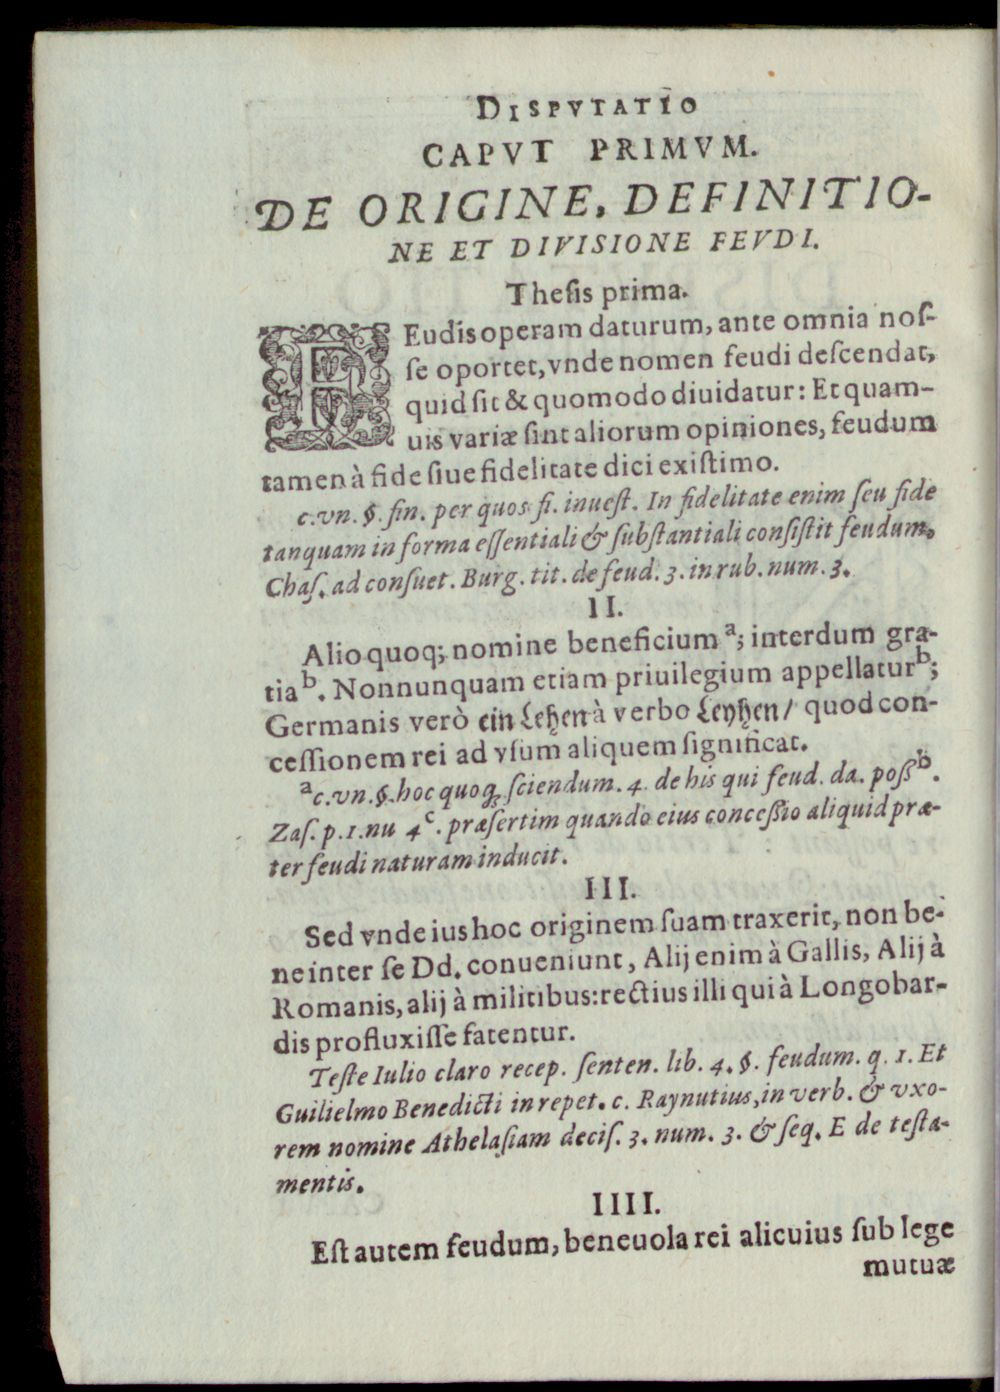 DISPVTATIO
CAPVT PRIMVM.
DE ORIGINE, DEFINITIO-
NE ET DIVISIONE FEVDI.
Theſis prima.
FEudis operam daturum, ante omnia noſ-
ſe oportet, vnde nomen feudi deſcendat,
quid ſit & quomodo diuidatur: Et quam-
uis variæ ſint aliorum opiniones, feudum
tamen à fide ſiue fidelitate dici exiſtimo.
c.vn. §. fin. per quos fi. inueſt. In fidelitate enim ſeu fide
tanquam in forma eſſentiali & ſubſtantiali conſiſtit feudum.
Chaſ. ad conſuet. Burg. tit. de feud. 3. in rub. num. 3.
II.
Alio quoq; nomine beneficium a; interdum gra-
tia b. Nonnunquam etiam priuilegium appellatur b;
Germanis verò ein Lehen à verbo Leyhen/ quod con-
ceſſionem rei ad vſum aliquem ſignificat.
a c.vn. §. hoc quoq; ſciendum. 4. de his qui feud. da. poß b.
Zaſ. p. 1. nu 4 c. præſertim quando eius conceßio aliquid præ-
ter feudi naturam inducit.
III.
Sed vnde ius hoc originem ſuam traxerit, non be-
ne inter ſe Dd. conueniunt, Alij enim à Gallis, Alij à
Romanis, alij à militibus: rectius illi qui à Longobar-
dis profluxiſſe fatentur.
Teſte Iulio claro recep. ſenten. lib. 4. §. feudum. q. 1. Et
Guilielmo Benedicti in repet. c. Raynutius, in verb. & vxo-
rem nomine Athelaſiam deciſ. 3. num. 3. & ſeq. E de teſta-
mentis.
IIII.
Eſt autem feudum, beneuola rei alicuius ſub lege
mutuæ